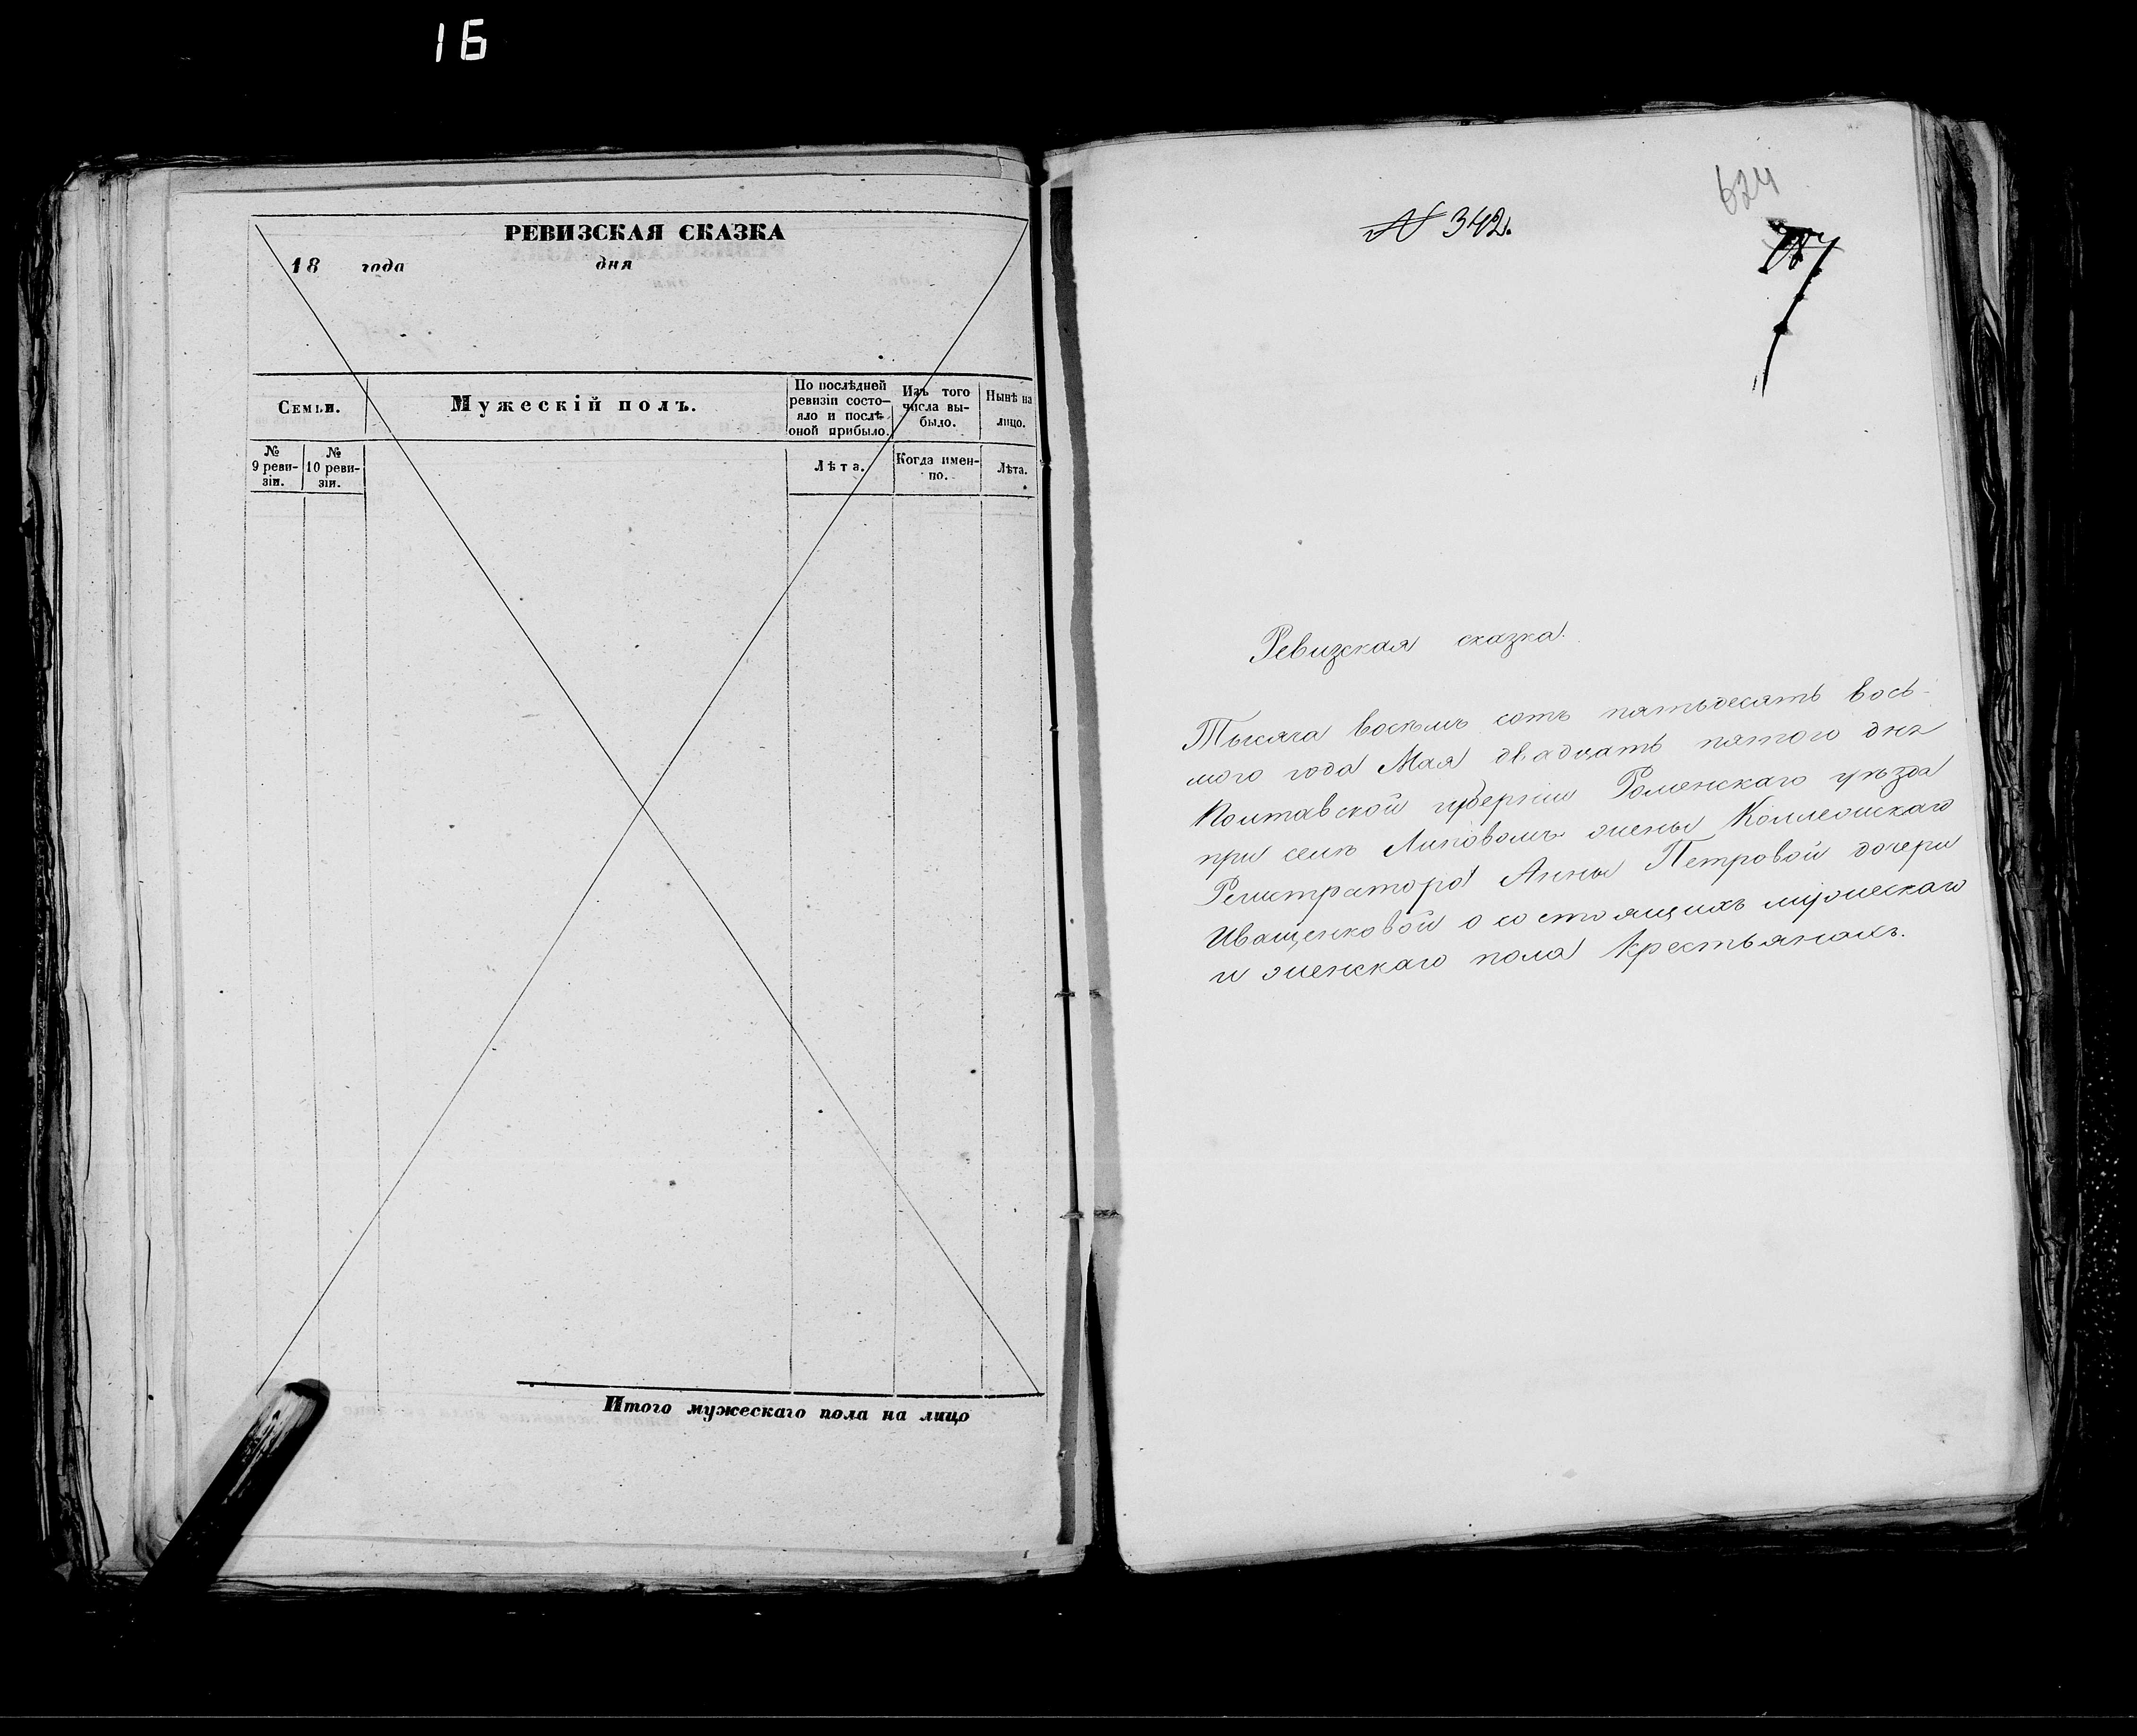 16
РЕВИЗСКАЯ СКАЗКА
18 года дня
Семьи.
Мужескій полъ.
По послѣдней
ревизіи состо-
яло и послѣ
оной прибыло.
Изъ того
числа вы-
было.
Нынѣ на
лицо.
№
9 реви-
зіи.
№
10 реви-
зіи.
Лѣта.
Когда имен-
но.
Лѣта.
Итого мужескаго пола на лицо
624
№ 342.
Ревизская сказка.
Тысяча восемь сотъ пятьдесятъ вось-
мого года Мая двадцать пятого дня
Полтавской губерніи Роменскаго уѣзда
при селѣ Липовомъ жены Коллежскаго
Регистратора Анны Петровой дочери
Иващенковой о состоящихъ мужескаго
и женскаго пола крестьянахъ.